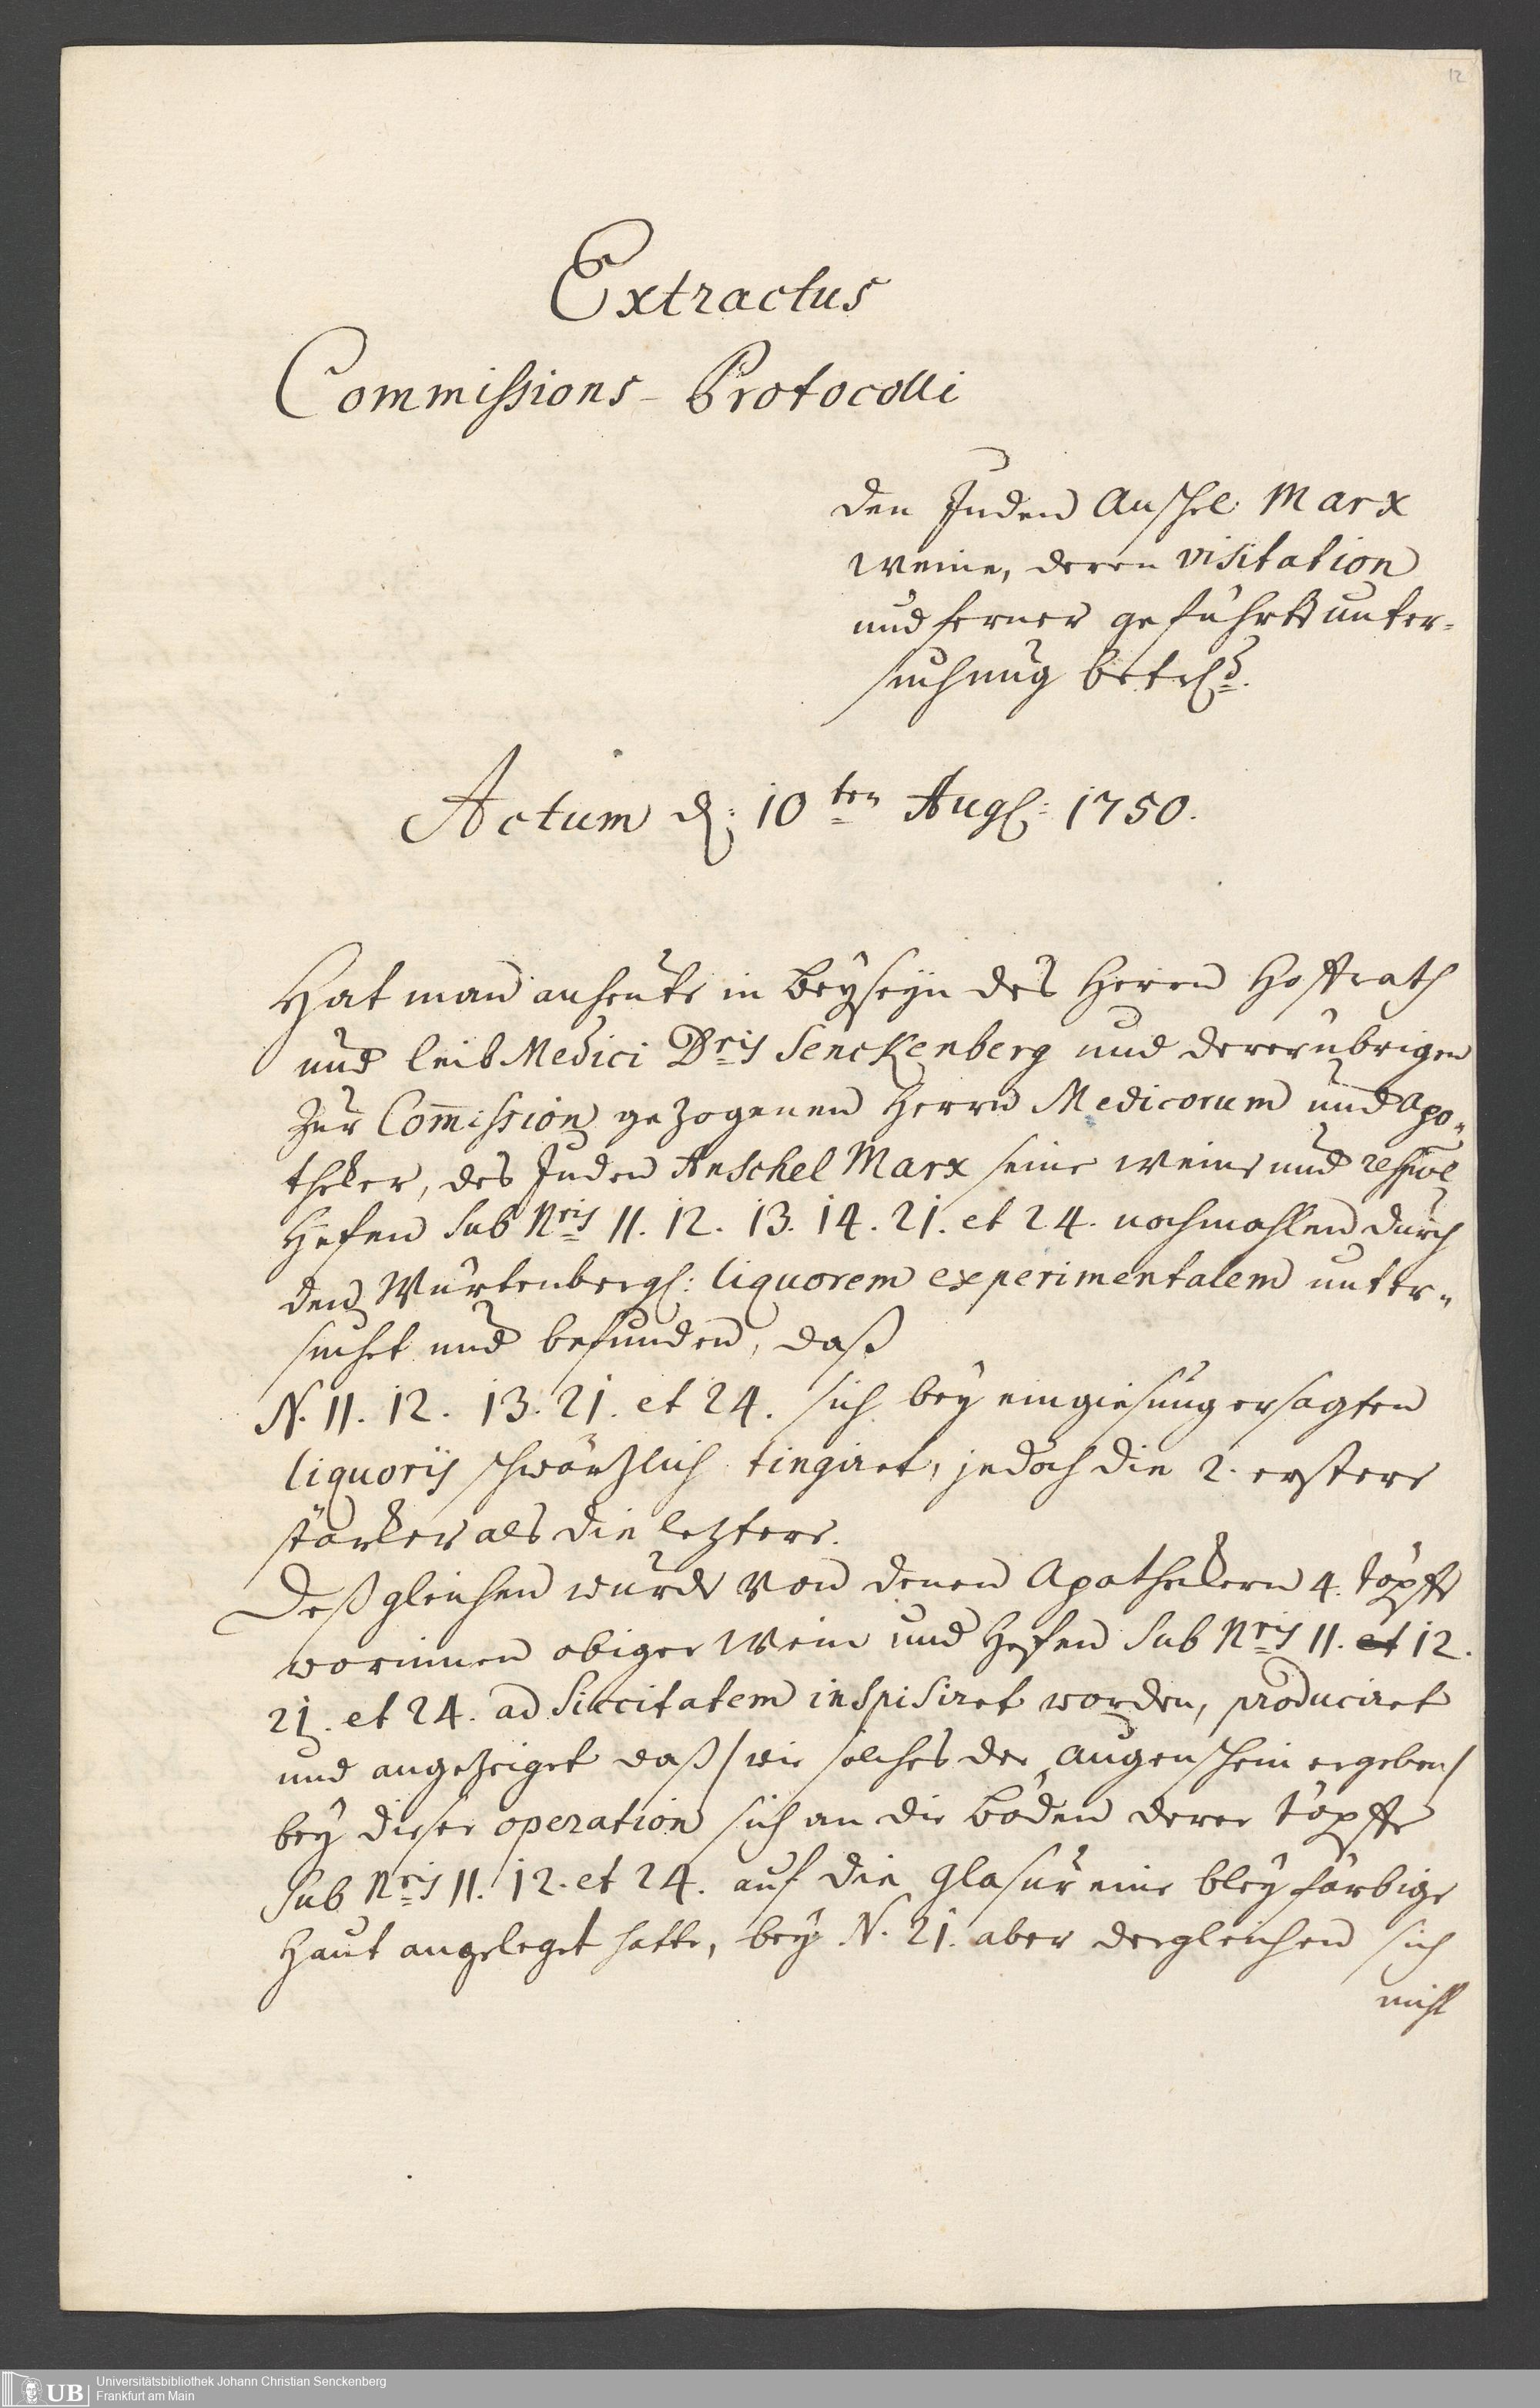 12
Extractus
Commissions-Protocolli
den Juden Anschel Marx
weine, deren visitation
und ferner geführte unter-
suchung betr.
Actum d: 10ten Aug: 1750.
Hat man anheute in beyseyn des Herrn Hoffrath
und leib Medici Dris Senckenberg und derer übrigen
zur Com̅ission gezogenen Herrn Medicorum und Apo-
theker, des Juden Anschel Marx seine weine und respive
Hefen sub Nris 11. 12. 13. 14. 21. et 24. nochmahlen durch
den Würtenbergs: liquorem experimentalem unter-
suchet und befunden, daß
N. 11. 12. 13. 21. et 24. sich bey eingiesung ersagten
liquoris schwärtzlich tingiret, jedoch die 2. erstere
stärker als die letztere.
Deßgleichen wurde von denen Apothekern 4. töpffe
worinnen obiger Wein und Hefen sub Nris 11. et 12.
21. et 24. ad Siccitatem inspisiret worden, produciret
und angezeiget daß /wie solches der Augenschein ergeben/
bey dieser operation sich an die böden derer töpffe
sub Nris 11. 12. et 24. auf die glasur eine bley farbige
Haut angeleget hatte, bey N. 21. aber dergleichen sich
nicht
UB
Universitätsbibliothek Johann Christian Senckenberg
Frankfurt am Main